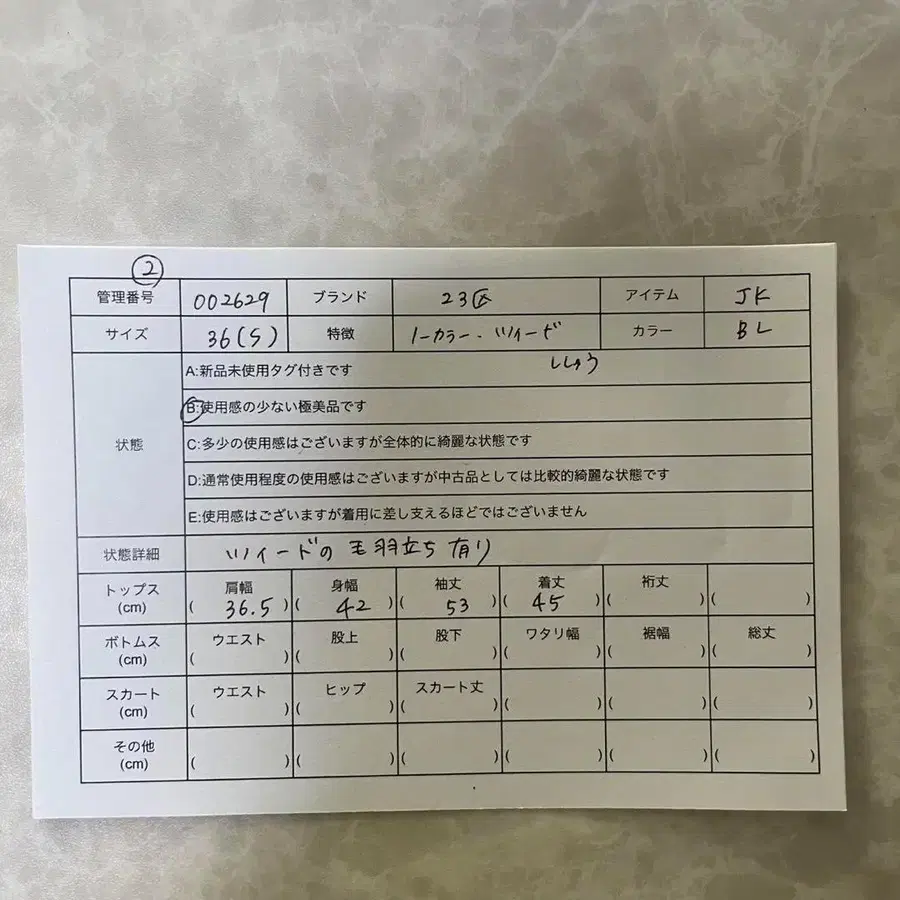 ②
管理番号 002629 ブランド 23区 アイテム JK
サイズ 36(S) 特徴 ノーカラー・ツィード カラー BL
ししゅう
状態
A:新品未使用タグ付きです
B:使用感の少ない極美品です
C:多少の使用感はございますが全体的に綺麗な状態です
D:通常使用程度の使用感はございますが中古品としては比較的綺麗な状態です
E:使用感はございますが着用に差し支えるほどではございません
状態詳細 ツィードの毛羽立ち有り
トップス 肩幅 身幅 袖丈 着丈 裄丈
(cm) (36.5) (42) (53) (45) ( ) ( )
ボトムス ウエスト 股上 股下 ワタリ幅 裾幅 総丈
(cm) ( ) ( ) ( ) ( ) ( ) ( )
スカート ウエスト ヒップ スカート丈
(cm) ( ) ( ) ( ) ( ) ( ) ( )
その他
(cm) ( ) ( ) ( ) ( ) ( ) ( )